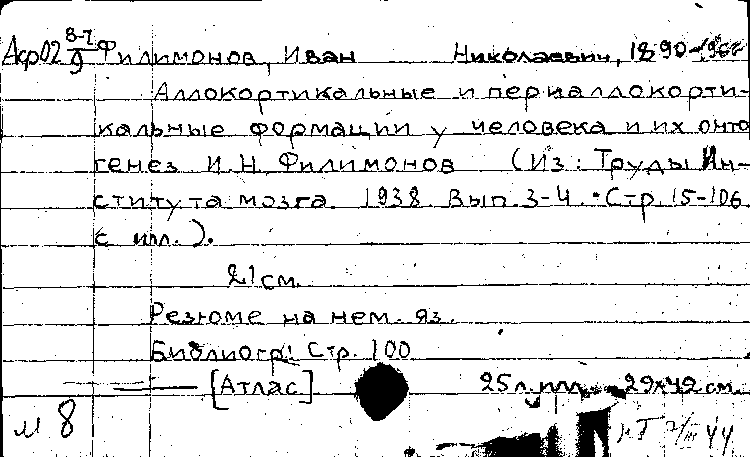 Аср02 8-7/9 Филимонов, Иван Николаевич, 1890-
Аллокортикальные и периаллокорти-
кальные формации у человека и их онто
генез И.Н. Филимонов (Из: Труды Ин-
ститута мозга. 1938. Вып. 3-4. Стр. 15-106
с илл.).
21 см.
Резюме на нем. яз.
Библиогр: Стр. 100
[Атлас] 25 л. илл. 29х42 см.
м 8